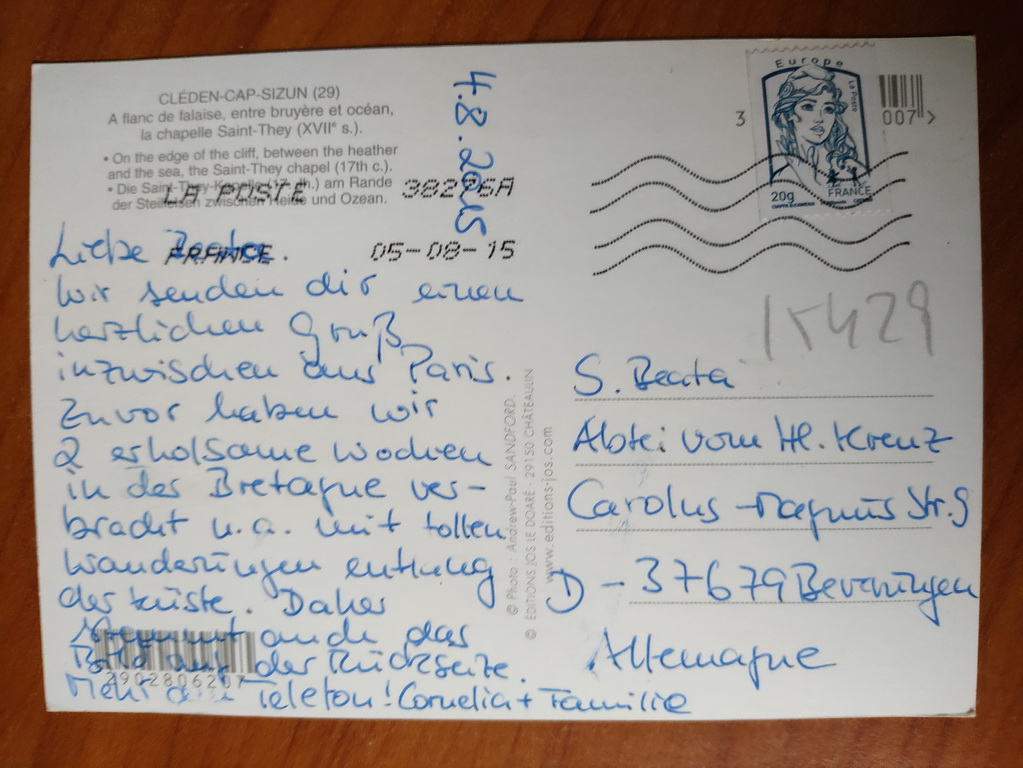 CLÉDEN-CAP-SIZUN (29)
A flanc de falaise, entre bruyère et océan,
la chapelle Saint-They (XVIIe s.).
• On the edge of the cliff, between the heather
and the sea, the Saint-They chapel (17th c.).
• Die Saint-They-K am Rande
der Steilfelsen zwischen Heide und Ozean.
4.8.2015
LA POSTE 38276A
FRANCE 05-08-15
Europe
La Poste
FRANCE
20g
3 007 >
Liebe Beate.
Wir senden dir einen
herzlichen Gruß
inzwischen aus Paris.
Zuvor haben wir
2 erholsame Wochen
in der Bretagne ver-
bracht u.a. mit tollen
Wanderungen entlang
der Küste. Daher
auch das
Bild auf der Rückseite.
Mehr am Telefon! Cornelia + Familie
2902806207
© Photo : Andrew-Paul SANDFORD.
© EDITIONS JOS LE DOARÉ - 29150 CHÂTEAULIN
www.editions-jos.com
15429
S. Beata
Abtei vom Hl. Kreuz
Carolus-Magnus Str. 9
D - 37679 Beverungen
Allemagne